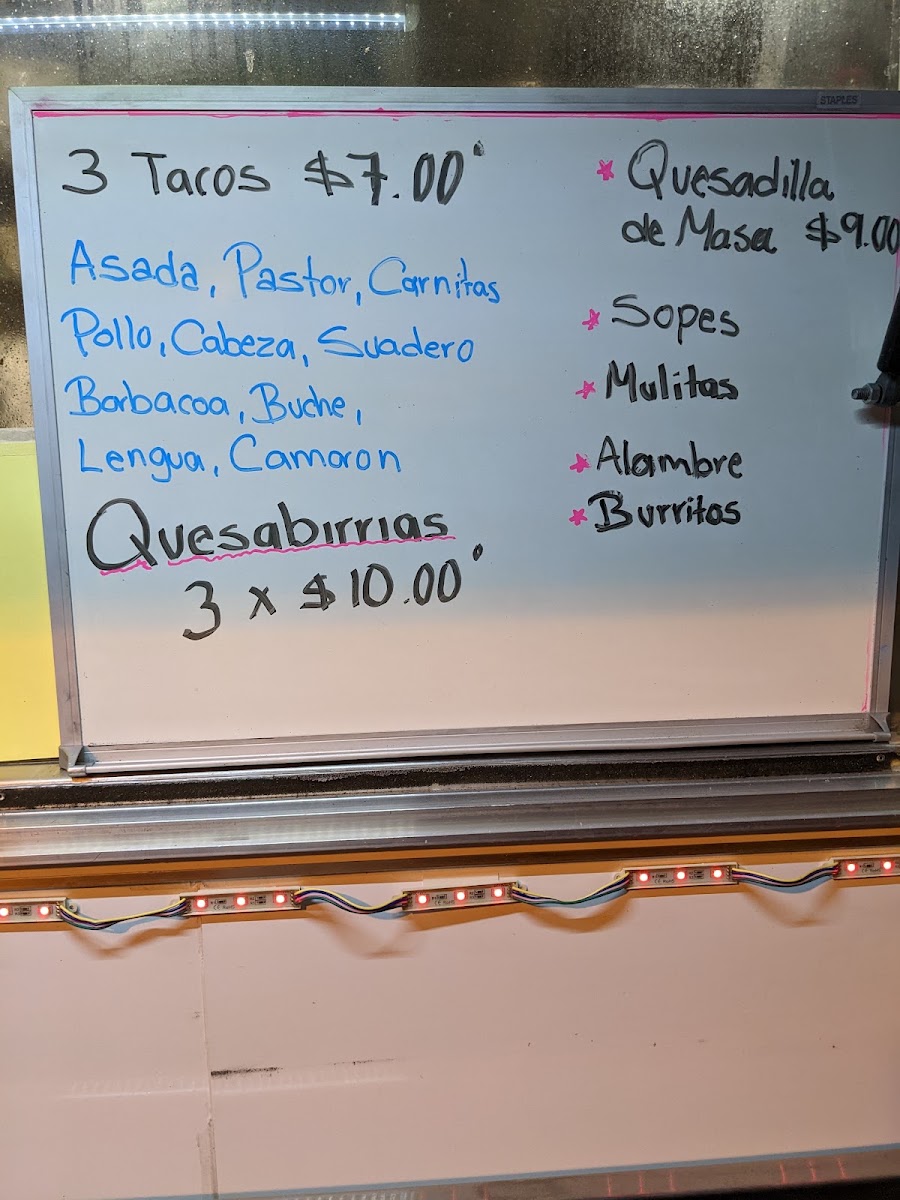 STAPLES
3 Tacos $7.00
Asada, Pastor, Carnitas
Pollo, Cabeza, Suadero
Barbacoa, Buche,
Lengua, Camaron
Quesabirrias
3 x $10.00
* Quesadilla
de Masa $9.00
* Sopes
* Mulitas
* Alambre
* Burritos